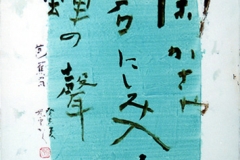 閑かさや
岩にしみ入
蝉の聲
芭蕉句